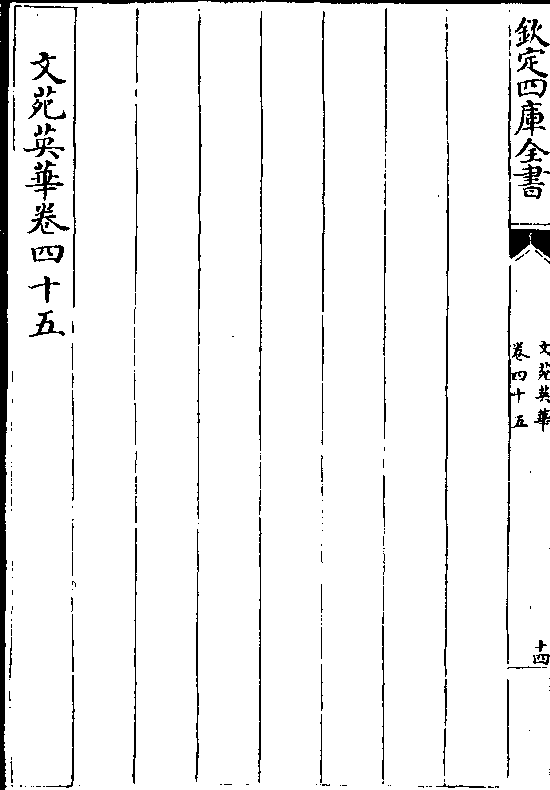 欽定四庫全書
文苑英華
卷四十五
十四
文苑英華卷四十五